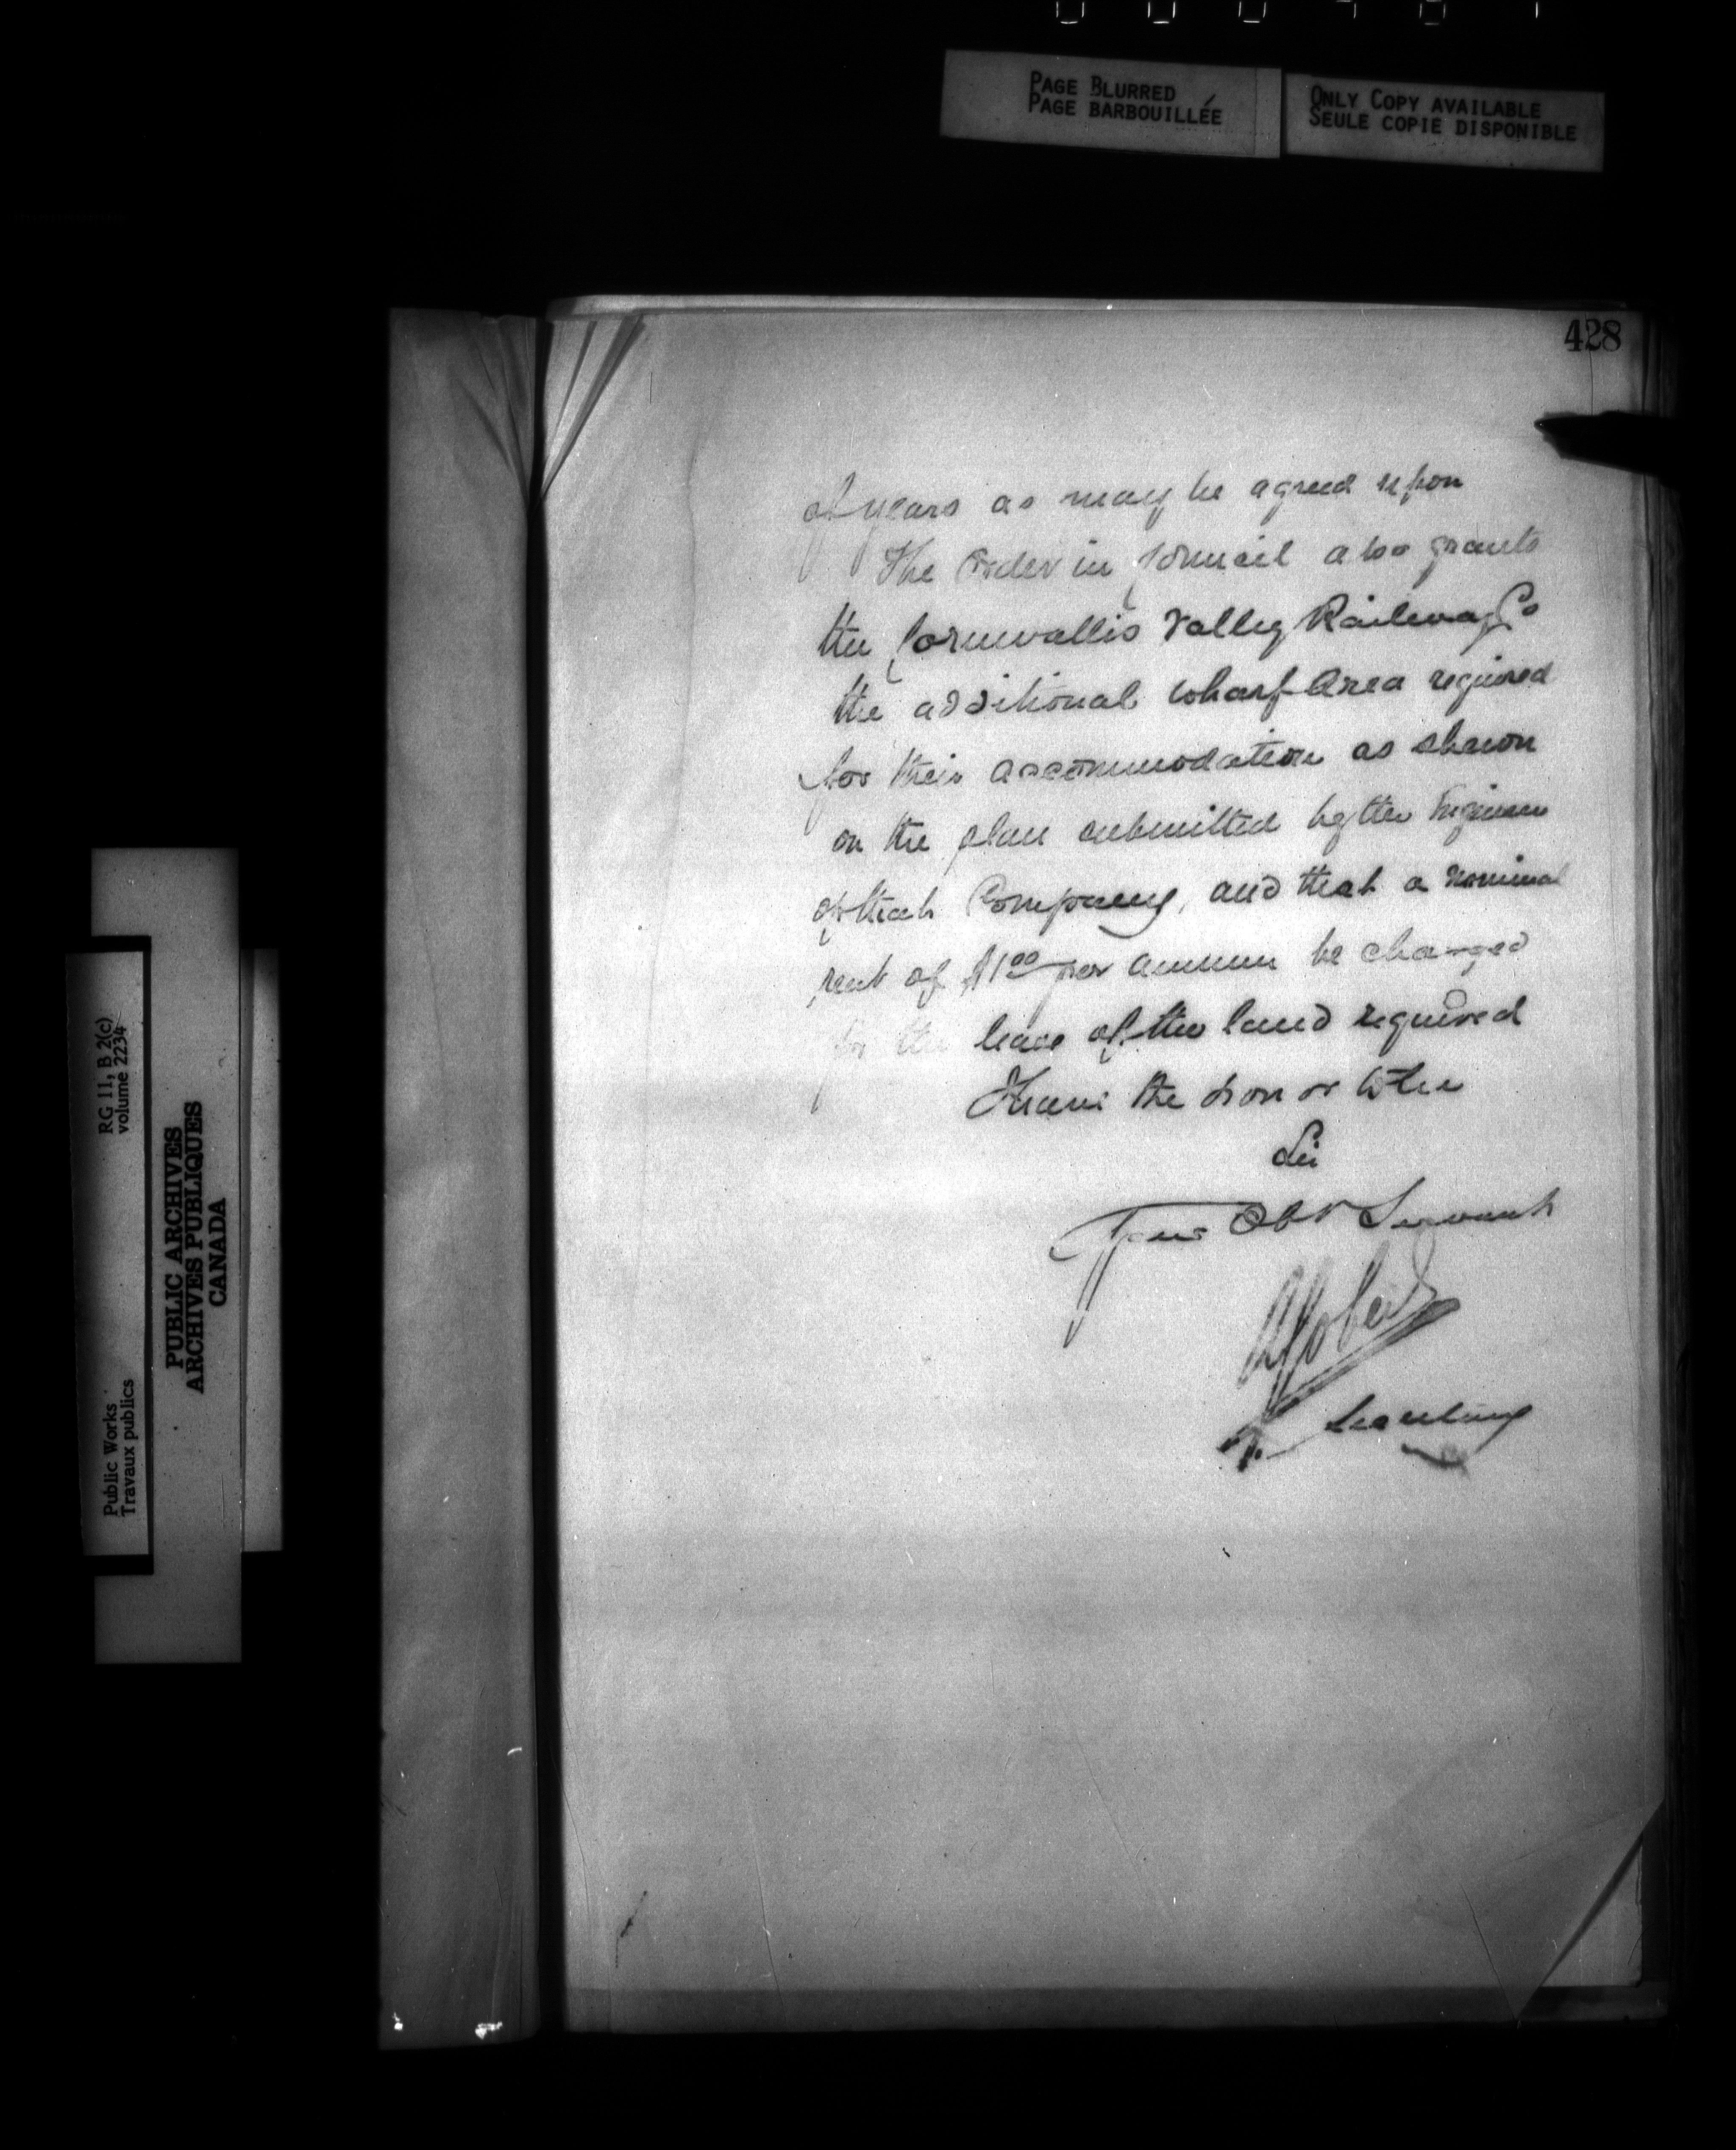 PAGE BLURRED
PAGE BARBOUILLÉE
ONLY COPY AVAILABLE
SEULE COPIE DISPONIBLE
428
of years as may be agreed upon
The Order in Council also grants
the Cornwallis Valley Railway Co
the additional wharf Area required
for their accommodation as shewn
on the plan submitted by the Engineer
of that Company, and that a nominal
rent of $1.00 per annum be charged
for the lease of the land required
I have the honor to be
Sir
Your Obt Servant
Gobeil
Secretary
RG 11, B 2(c)
volume 2234
Public Works
Travaux publics
PUBLIC ARCHIVES
ARCHIVES PUBLIQUES
CANADA